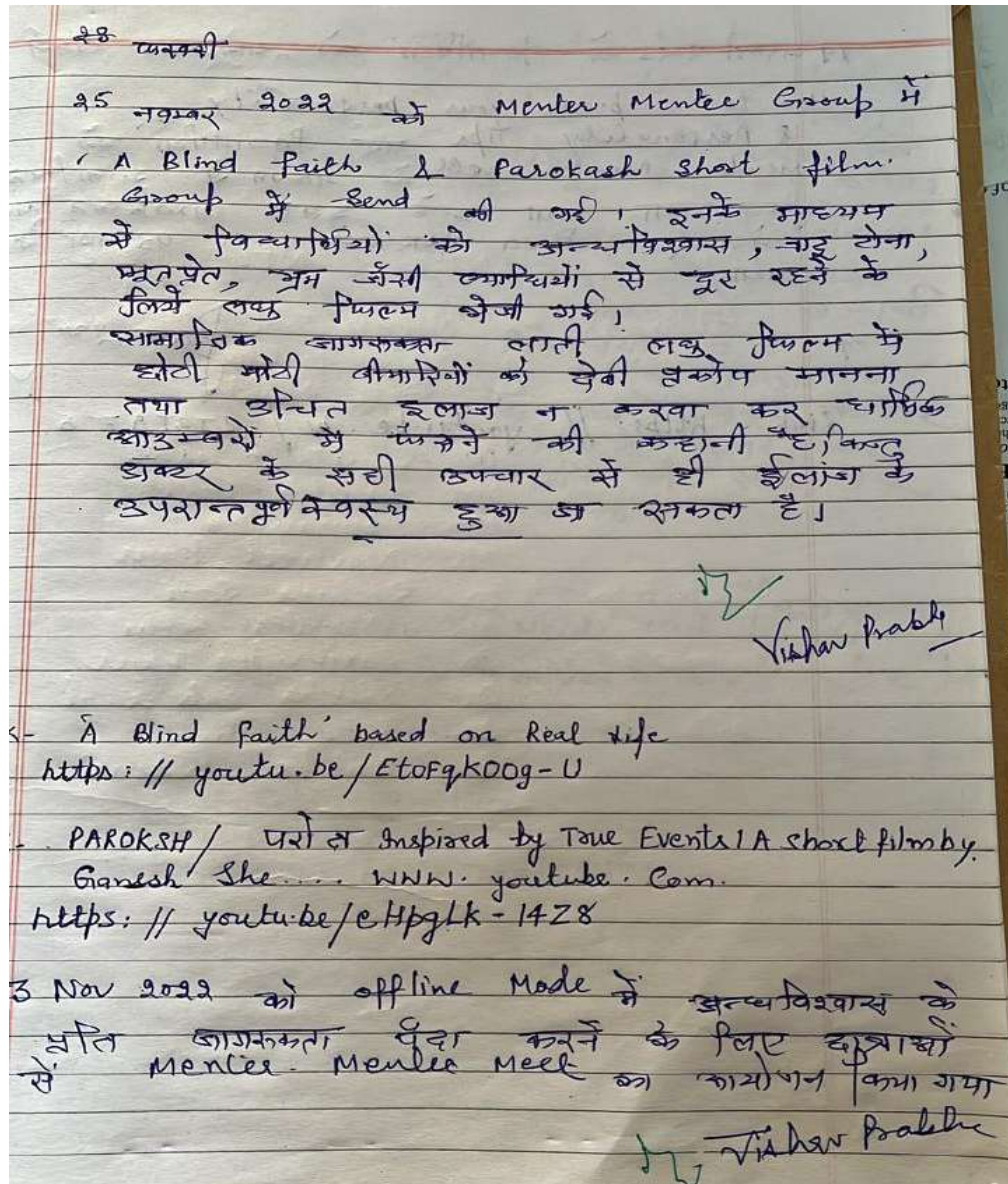 28 फरवरी
25 नवम्बर 2022 को Menter Mentee Group में
' A Blind Faith & Parokash short film.
Group में Send की गई। इनके माध्यम
से विद्यार्थियों को अन्धविश्वास, जादू टोना,
भूतप्रेत, भ्रम जैसी व्याधियों से दूर रहने के
लिये लघु फिल्म भेजी गई।
सामाजिक जागरुकता लाती लघु फिल्म में
छोटी मोटी बीमारियों को देवी प्रकोप मानना
तथा उचित इलाज न करवा कर धार्मिक
आडम्बरों में फंसने की कहानी है, किन्तु
डाक्टर के सही उपचार से ही ईलाज के
उपरान्त पूर्ण स्वस्थ हुआ जा सकता है।
Vishav Prabh
- 'A Blind Faith' based on Real Life
https://youtu.be/EtoFqKOOg-U
PAROKSH / परोक्ष Inspired by True Events / A short film by.
Ganesh She.... WWW.youtube.Com.
https://youtu.be/eHpgLk-14Z8
3 Nov 2022 को offline Mode में अन्धविश्वास के
प्रति जागरुकता पैदा करने के लिए छात्राओं
से Mentee Mentee Meet का आयोजन किया गया
Vishav Prabha